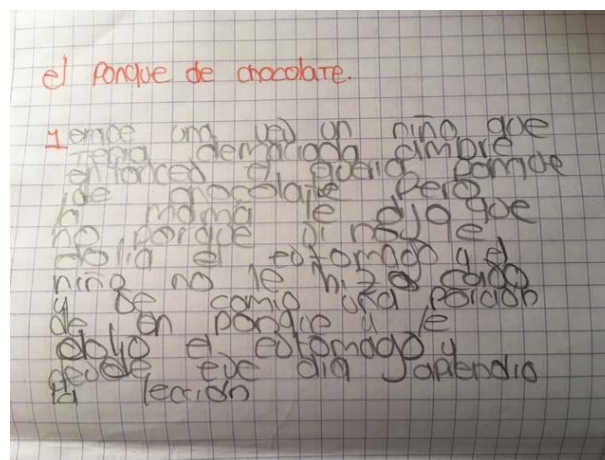 el ponque de chocolate.
1 erace una ves un niño que
tenia demasiada ambre
entonces el queria ponque
de chocolate pero
la mamá le dijo que
no porque si no le
dolia el estomago y el
niño no le hizo caso
y se comio una porcion
de un ponque y le
dolio el estomago y
desde ese dia aprendio
la lección